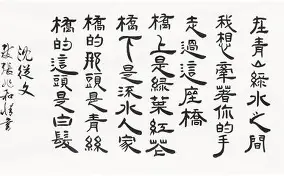 在青山綠水之間
我想牽著你的手
走過這座橋
橋上是綠葉紅花
橋下是流水人家
橋的那頭是青絲
橋的這頭是白髮
沈從文
致張兆和情書